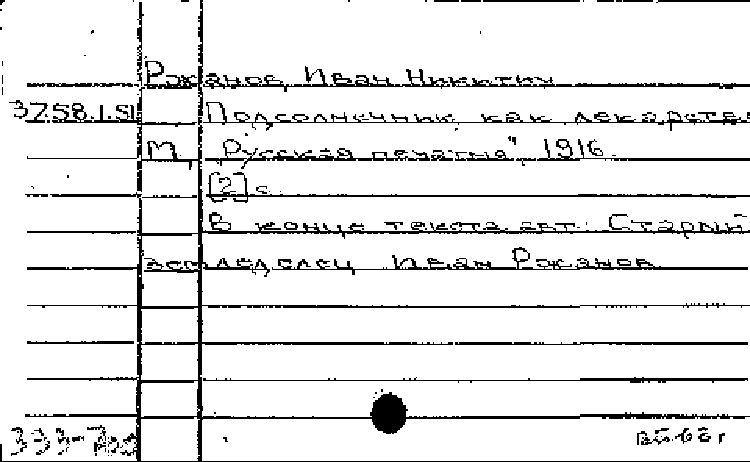 Ржанов, Иван Никитич
3758.1.51 Подсолнечник, как лекарстве
М, "Русская печатня", 1916.
[2] с.
В конце текста авт.: Старый
земледелец Иван Ржанов
333-